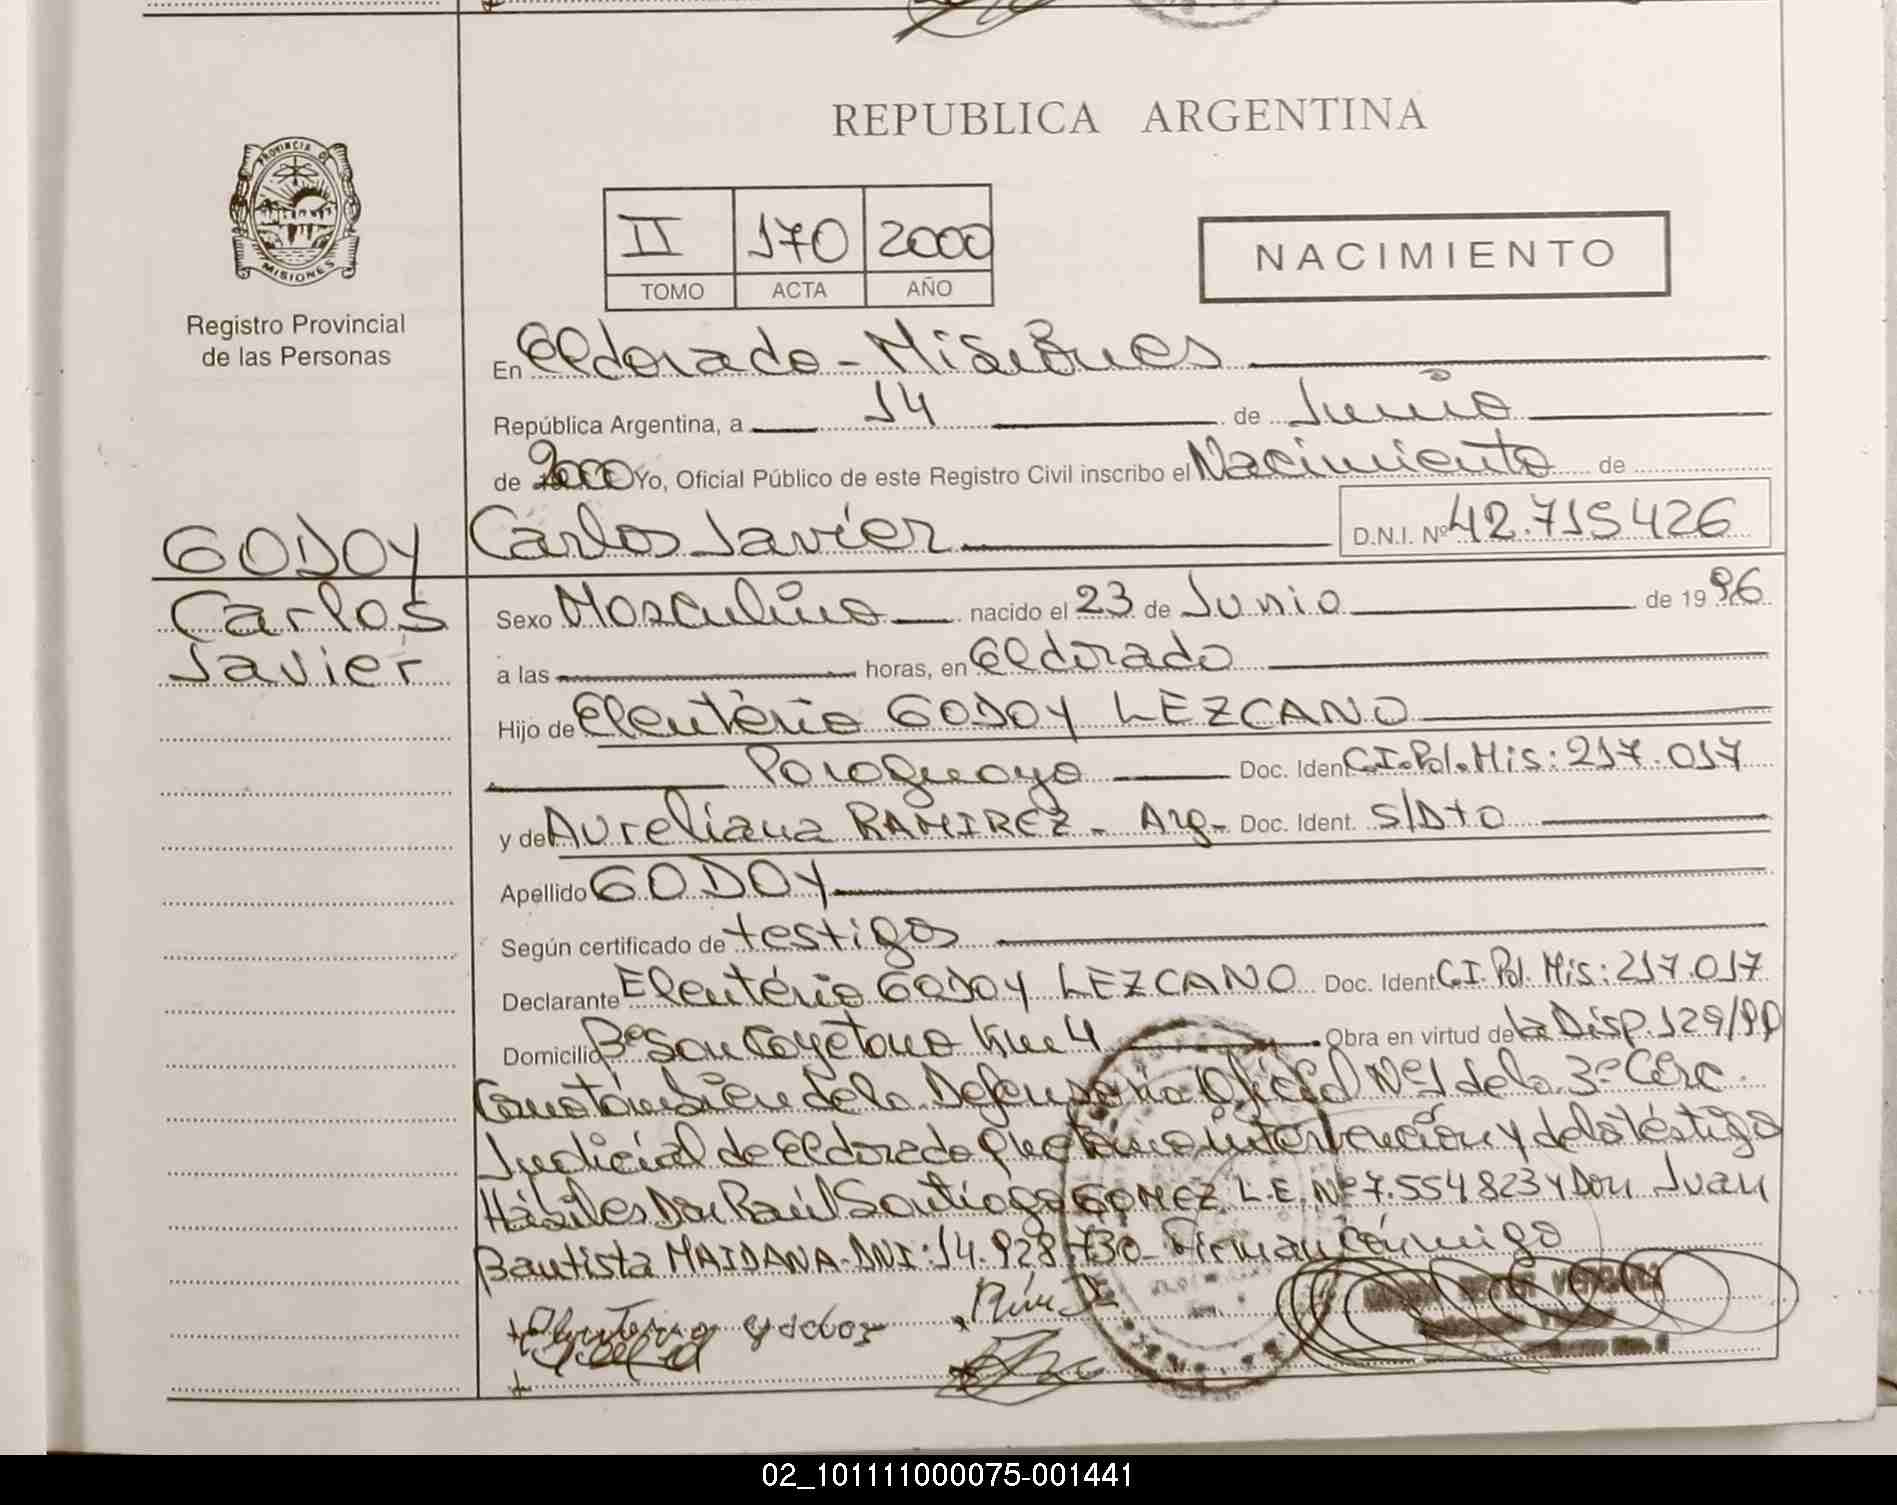 PROVINCIA DE
MISIONES
Registro Provincial
de las Personas
REPUBLICA ARGENTINA
II 170 2000
TOMO ACTA AÑO
NACIMIENTO
En Eldorado - Misiones
República Argentina, a 14 de Junio
de 2000 Yo, Oficial Público de este Registro Civil inscribo el Nacimiento de
GODOY Carlos Javier D.N.I. Nº 42.715426
Carlos
Javier
Sexo Masculino nacido el 23 de Junio de 1996
a las horas, en Eldorado
Hijo de Eleutério GODOY LEZCANO
Paraguayo Doc. Ident C.I.Pol.Mis: 217.017
y de Aureliana RAMIREZ - Arg- Doc. Ident. S/Dto
Apellido GODOY
Según certificado de testigos
Declarante Eleutério GODOY LEZCANO Doc. Ident C.I. Pol. Mis: 217.017
Domicilio Bº San Cayetano Km 4 Obra en virtud de la Disp. 129/99
de la Defensoria Oficial Nº1 de la 3º Circ.
Judicial de Eldorado que toma intervención y de los téstigo
Hábiles Don Raúl Santiago GOMEZ L.E. Nº 7.554823 y Don Juan
Bautista MAIDANA-DNI: 14.928730- Firman cónmigo
02_101111000075-001441